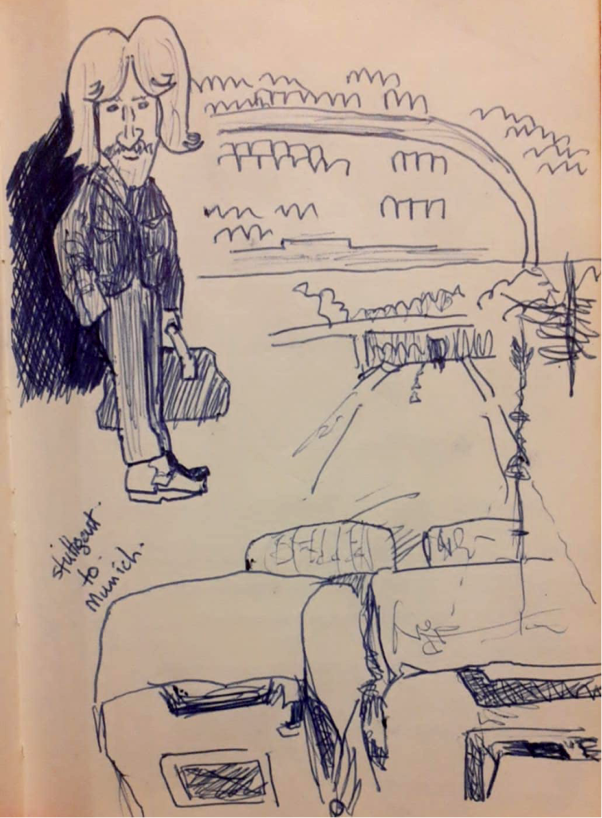 stuttgart.
to.
Munich.